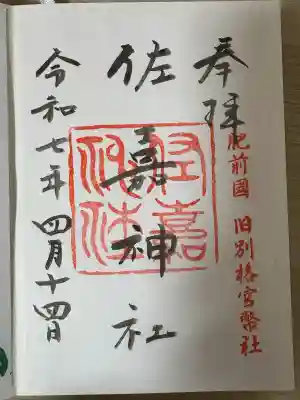 奉拝
肥前國 旧別格官幣社
佐嘉神社
令和七年 四月十四日